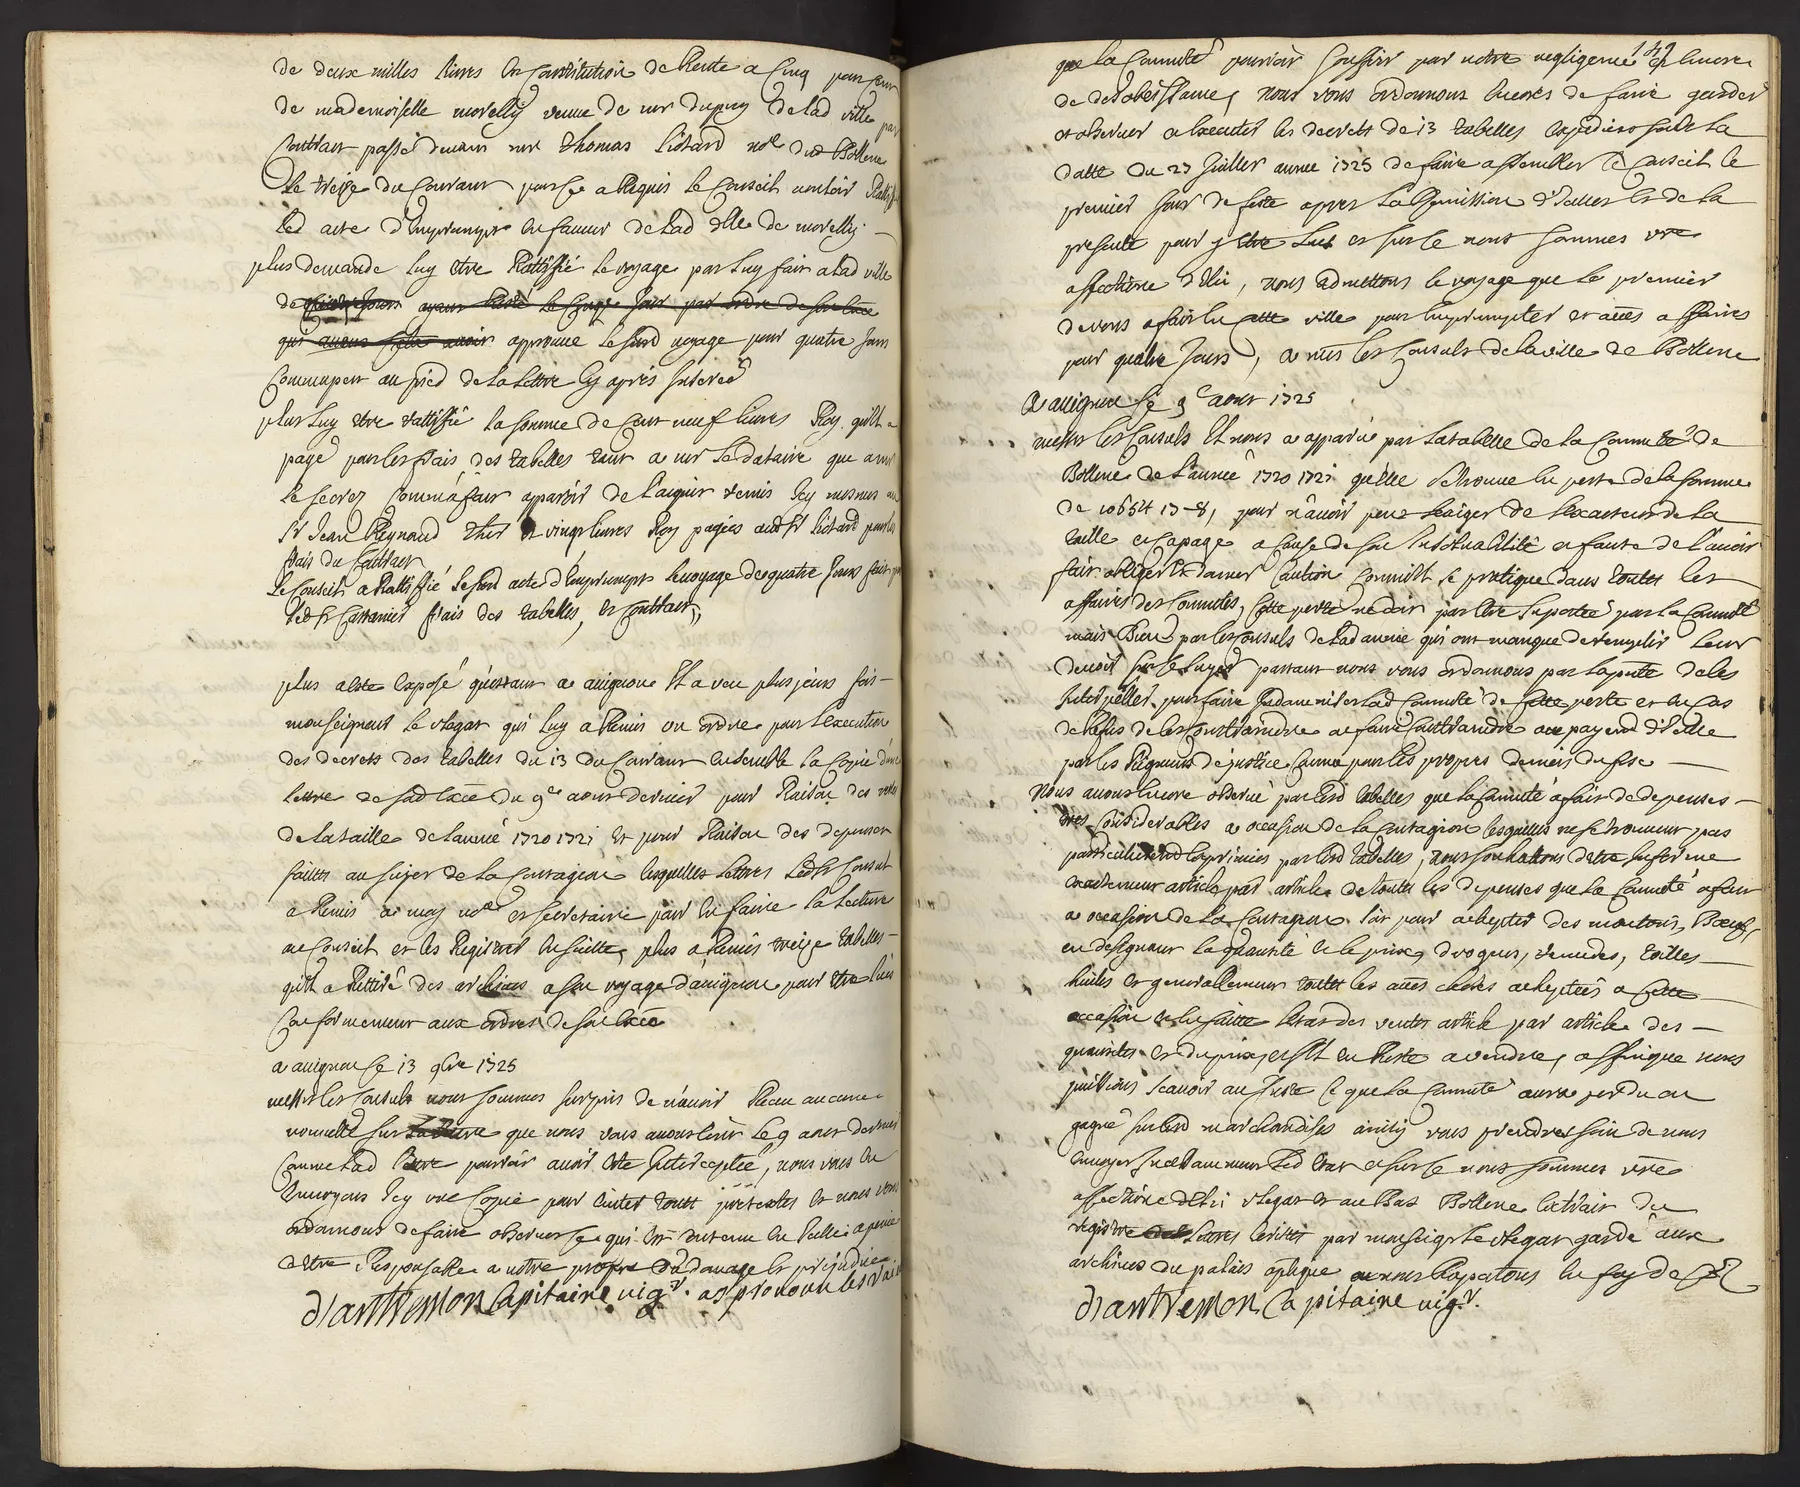 de deux milles livres en Constitution de Rente a Cinq pour Cent
de mademoiselle morelly veuve de mr dupuy de lad ville par
Contract passé devant mr thomas liotard nore dud Bollene
le treize du Courant pour ce a Requis le Conseil vouloir Rattif
led acte d'Emprumpt en faveur de lad dlle de morelly
plus demande luy etre Rattiffié le voyage par luy fait a lad ville
de
approuvé lesurd voyage pour quatre jours
Comme apert au pied de la lettre Cy après Inseree
plus luy etre rattiffié la somme de Cent neuf livres Roy quil a
payé pour les frais des tabelles tant a mr le dataire que a mr
le secrer Comm'a fait apparoir de l'aquit remis Icy mesmes au
Sr Jean Reynaud thier & vingt livres Roy payées aud Sr liotard pour les
frais du Contract
Le Conseil a Rattiffié lesurd acte d'Emprumpt le voyage de quatre Jours fait par
led Sr Cattanier frais des tabelles, et Contract,
plus a été Exposé qu'estant a avignon Il a veu plusieurs fois
monseigneur le vlegat qui luy a Remis un ordre pour l'execution
des decrets des tabelles du 13 du Courant ensemble la Copie d'une
lettre de sad Exce du 9e aoust dernier pour Raison des
de la taille de l'année 1720 1721 et pour Raison des depenses
faittes au sujet de la Contagion lesquelles lettres led Sr Consul
a Remis a moy nore et secretaire pour en faire la lecture
au Conseil et les Registrer en suitte, plus a Remis treize tabelles
quil a Rettiré des archives a son voyage d'avignon pour etre
Conformement aux ordres de son Exce
a avignon ce 13 9bre 1725
messrs les Consuls nous sommes surpris de n'avoir Receu aucune
nouvelle sur que nous vous avons ecrit le 9 aoust dernier
Comme lad lettre pourroit avoir eté Interceptée, nous vous en
Envoyons Icy une Copie pour eviter touts pretextes et nous vous
ordonnons de faire observer ce qui est Contenu en Icelle a peine
d'etre Responsable a notre propre du domage et prejudice
d'antremon Capitaine vigr. approuvant les
142
que la Comunté pourroit souffrir par votre negligence et encore
de desobeissance, nous vous ordonnons encores de faire garder
et observer et executer les decrets de 13 tabelles expediees sous la
datte du 27 Juillet année 1725 de faire assembler le Conseil le
premier jour de feste apres la Remission d'Icelles et de la
presente pour y etre lues et sur ce nous sommes vre
affectione d'Elci, nous admettons le voyage que le premier
de vous a fait en cette ville pour emprumpter et autres affaires
pour quatre jours, a mrs les Consuls de la ville de Bollene
A avignon ce 9e aoust 1725
messrs les Consuls Il nous a apparu par la tabelle de la Commté de
Bollene de l'année 1720 1721 qu'elle se trouve en perte de la somme
de 1065# 13-8, pour n'avoir peu Exiger de l'exacteur de la
taille et Capage a Cause de son Insolvabilité et faute de l'avoir
fait obliger et donner Caution Comm'Il se pratique dans toutes les
affaires des Comutés, Cette perte ne doit pas etre suportée par la Comuté
mais Bien par les Consuls de lad année qui ont manqué de remplir leur
devoir sur le sujet partant nous vous ordonnons par la pnte de les
Interpeller pour faire Indamniser lad Comuté de Cette perte et en Cas
de Refus de les Contraindre et faire Contraindre au payemt d'Icelle
par les Rigueurs de justice Comme pour les propres deniers du fisc
Nous avons encore observé par lesd tabelles que la Comuté a fait de depenses
tres Considerables a occasion de la Contagion lesquelles ne se trouvent pas
particulieremt Exprimées par lesd tabelles, nous souhaittons d'etre Informé
exactement article par article de toutes les depenses que la Comuté a fait
a occasion de la Contagion soit pour achepter des moutons, Boeufs,
en designant la quantité et le prix, drogues, remedes, toilles
huiles et generallement toutes les autres choses acheptées a Cette
occasion et en suitte l'etat des ventes article par article des
quantités et du prix, et s'Il en Reste a vendre, affinque nous
puissions scavoir au Juste Ce que la Comuté aura perdu ou
gagné sur lesd marchandises ainsy vous prendres soin de nous
envoyer Incessamment led etat et sur ce nous sommes vre
affectionné d'Elci vlegat et au Bas Bollene Extrait du
registre des lettres Ecrittes par monseigr le vlegat gardé aux
archives du palais aplique nous Exposons en foy de
d'antremon, Capitaine vigr.